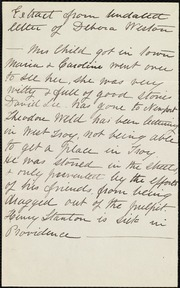 Extract from undated
letter of Debora Weston
— Mrs Child got in town
Maria & Caroline went once
to see her, she was very
witty & full of good stories
David Lee. has gone to Newport
Theodore Weld has been lecturing
in West Troy, not being able
to get a place in Troy
He was stoned in the streets
& only prevented by the efforts
of his friends from being
dragged out of the pulpit.
Henry Stanton is sick in
Providence —